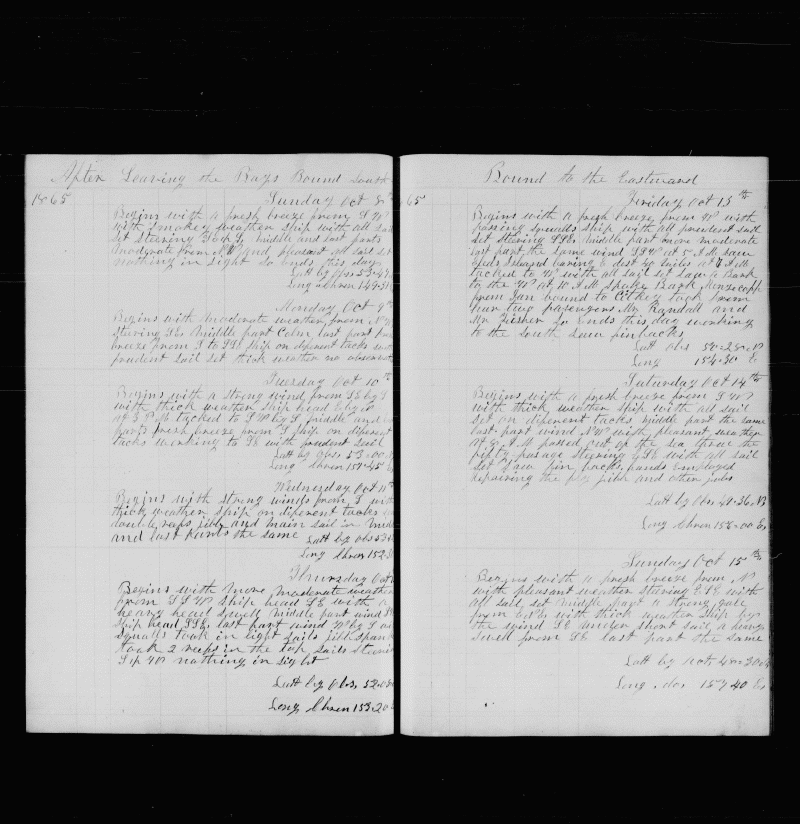 After Leaving the Bays Bound South
1865
Sunday Oct 8th
Begins with a fresh breeze from S W
with smokey weather ship with all sail
set steering S by E middle and last parts
moderate from N W and pleasant all sail set
nothing in sight so ends this day
Latt by Obs 53-47
Long Chron 149-31
Monday Oct 9th
Begins with moderate weather from N W
stering SE middle part Calm last part
breeze from S to SSE ship on diferent tacks
prudent sail set thick weather no observat
Tuesday Oct 10th
Begins with a strong wind from SE by S
with thick weather ship head E by
at P M tacked to S W by S middle and
parts fresh breeze from S ship on diferent
tacks working to SE with prudent sail
Latt by Obs 53-00
Long Chron 151-45
Wednesday Oct 11th
Begins with strong winds from S with
thick weather ship on diferent tackes
double reefs jibb and main sail in mid
and last parts the same Latt by obs 53
Long Chron 152-3
Thursday Oct
Begins with more moderate weather
from SSW ship head SE with a
heavy head swell middle part wind S
ship head SSE last part wind W by S
squalls took in light sails jibb span
took 2 reefs in the top sails steering
nothing in sight
Latt by Obs 52-0
Long Chron 153-20
Bound to the Eastward
65
Friday Oct 13th
Begins with a fresh breeze from W with
passing squalls ship with all prudent sail
set steering SSE middle part more moderate
last part the same wind SSW at 5 A M saw
Island baring E dist 40 miles at 7 A M
tacked to W with all sail set saw a Bark
to the W at 10 A M Spoke Bark
from Jan bound to took from
her two pasengers Mr Randall and
Mr Fisher So Ends this day working
to the South saw finbacks
Latt obs 50-25 N
Long 154-30 E
Saturday Oct 14th
Begins with a fresh breeze from S W
with thick weather ship with all sail
set on diferent tacks middle part the same
last part wind S W pleasant weather
At 8 A M passed out of the sea threw the
fifty pasage Steering ESE with all sail
set saw fin backs hands Employed
repairing the fly jibb and other jobs
Latt by Obs 49-36 N
Long Chron 156-00 E
Sunday Oct 15th
Begins with a fresh breeze from N
with pleasant weather steering ESE with
all sail set middle part a strong gale
from E by N with thick weather ship by
the wind SE under short sail a heavy
swell from SE last part the same
Latt by acct 48-20 N
Long do 157-40 E